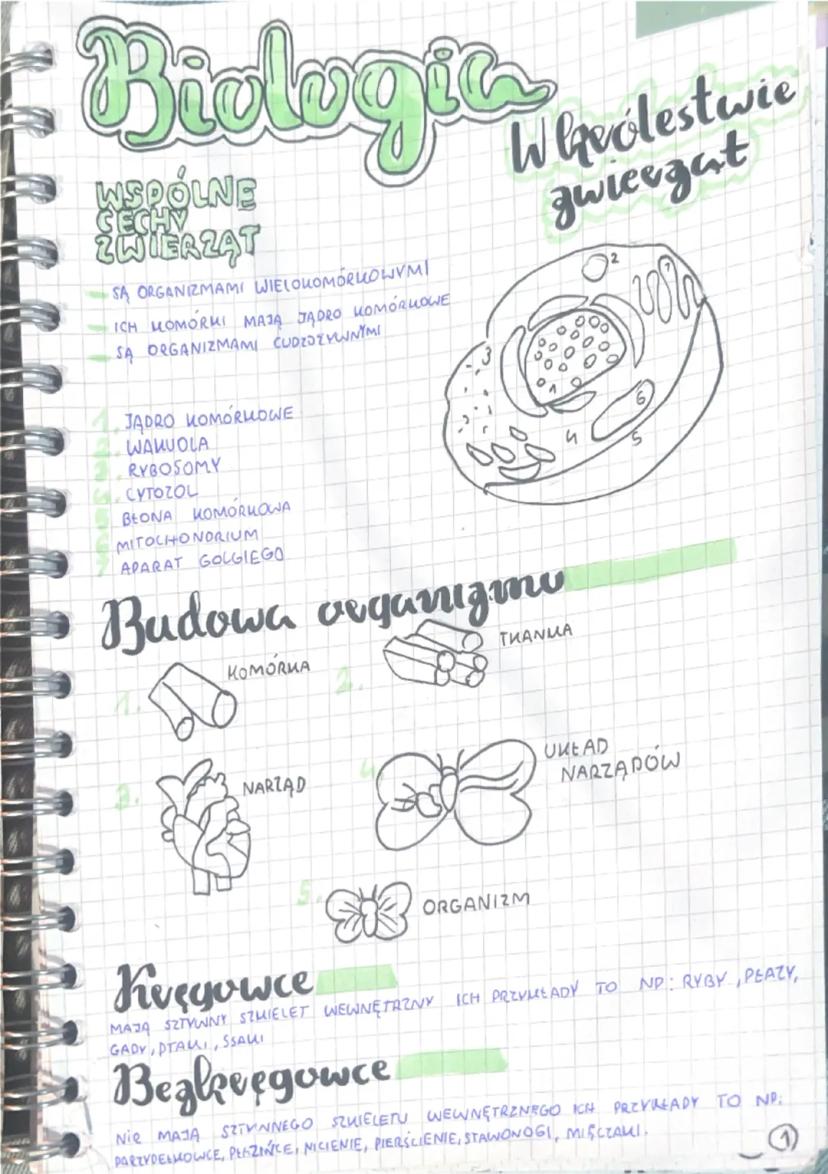 Biologia
W królestwie
zwierząt
WSPÓLNE
CECHY
ZWIERZĄT
SĄ ORGANIZMAMI WIELOKOMÓRKOWYMI
ICH KOMÓRKI MAJĄ JĄDRO KOMÓRKOWE
SĄ ORGANIZMAMI CUDZOŻYWNYMI
2
7
3
1
6
4
5
1. JĄDRO KOMÓRKOWE
2. WAKUOLA
3. RYBOSOMY
4. CYTOZOL
5. BŁONA KOMÓRKOWA
6. MITOCHONDRIUM
7. APARAT GOLGIEGO
Budowa organizmu
1. KOMÓRKA
2. TKANKA
3. NARZĄD
4. UKŁAD
NARZĄDÓW
5. ORGANIZM
Kręgowce
MAJĄ SZTYWNY SZKIELET WEWNĘTRZNY ICH PRZYKŁADY TO NP: RYBY, PŁAZY,
GADY, PTAKI, SSAKI
Bezkręgowce
NIE MAJĄ SZTYWNEGO SZKIELETU WEWNĘTRZNEGO ICH PRZYKŁADY TO NP.
PARZYDEŁKOWCE, PŁAZIŃCE, NICIENIE, PIERŚCIENIE, STAWONOGI, MIĘCZAKI.
1